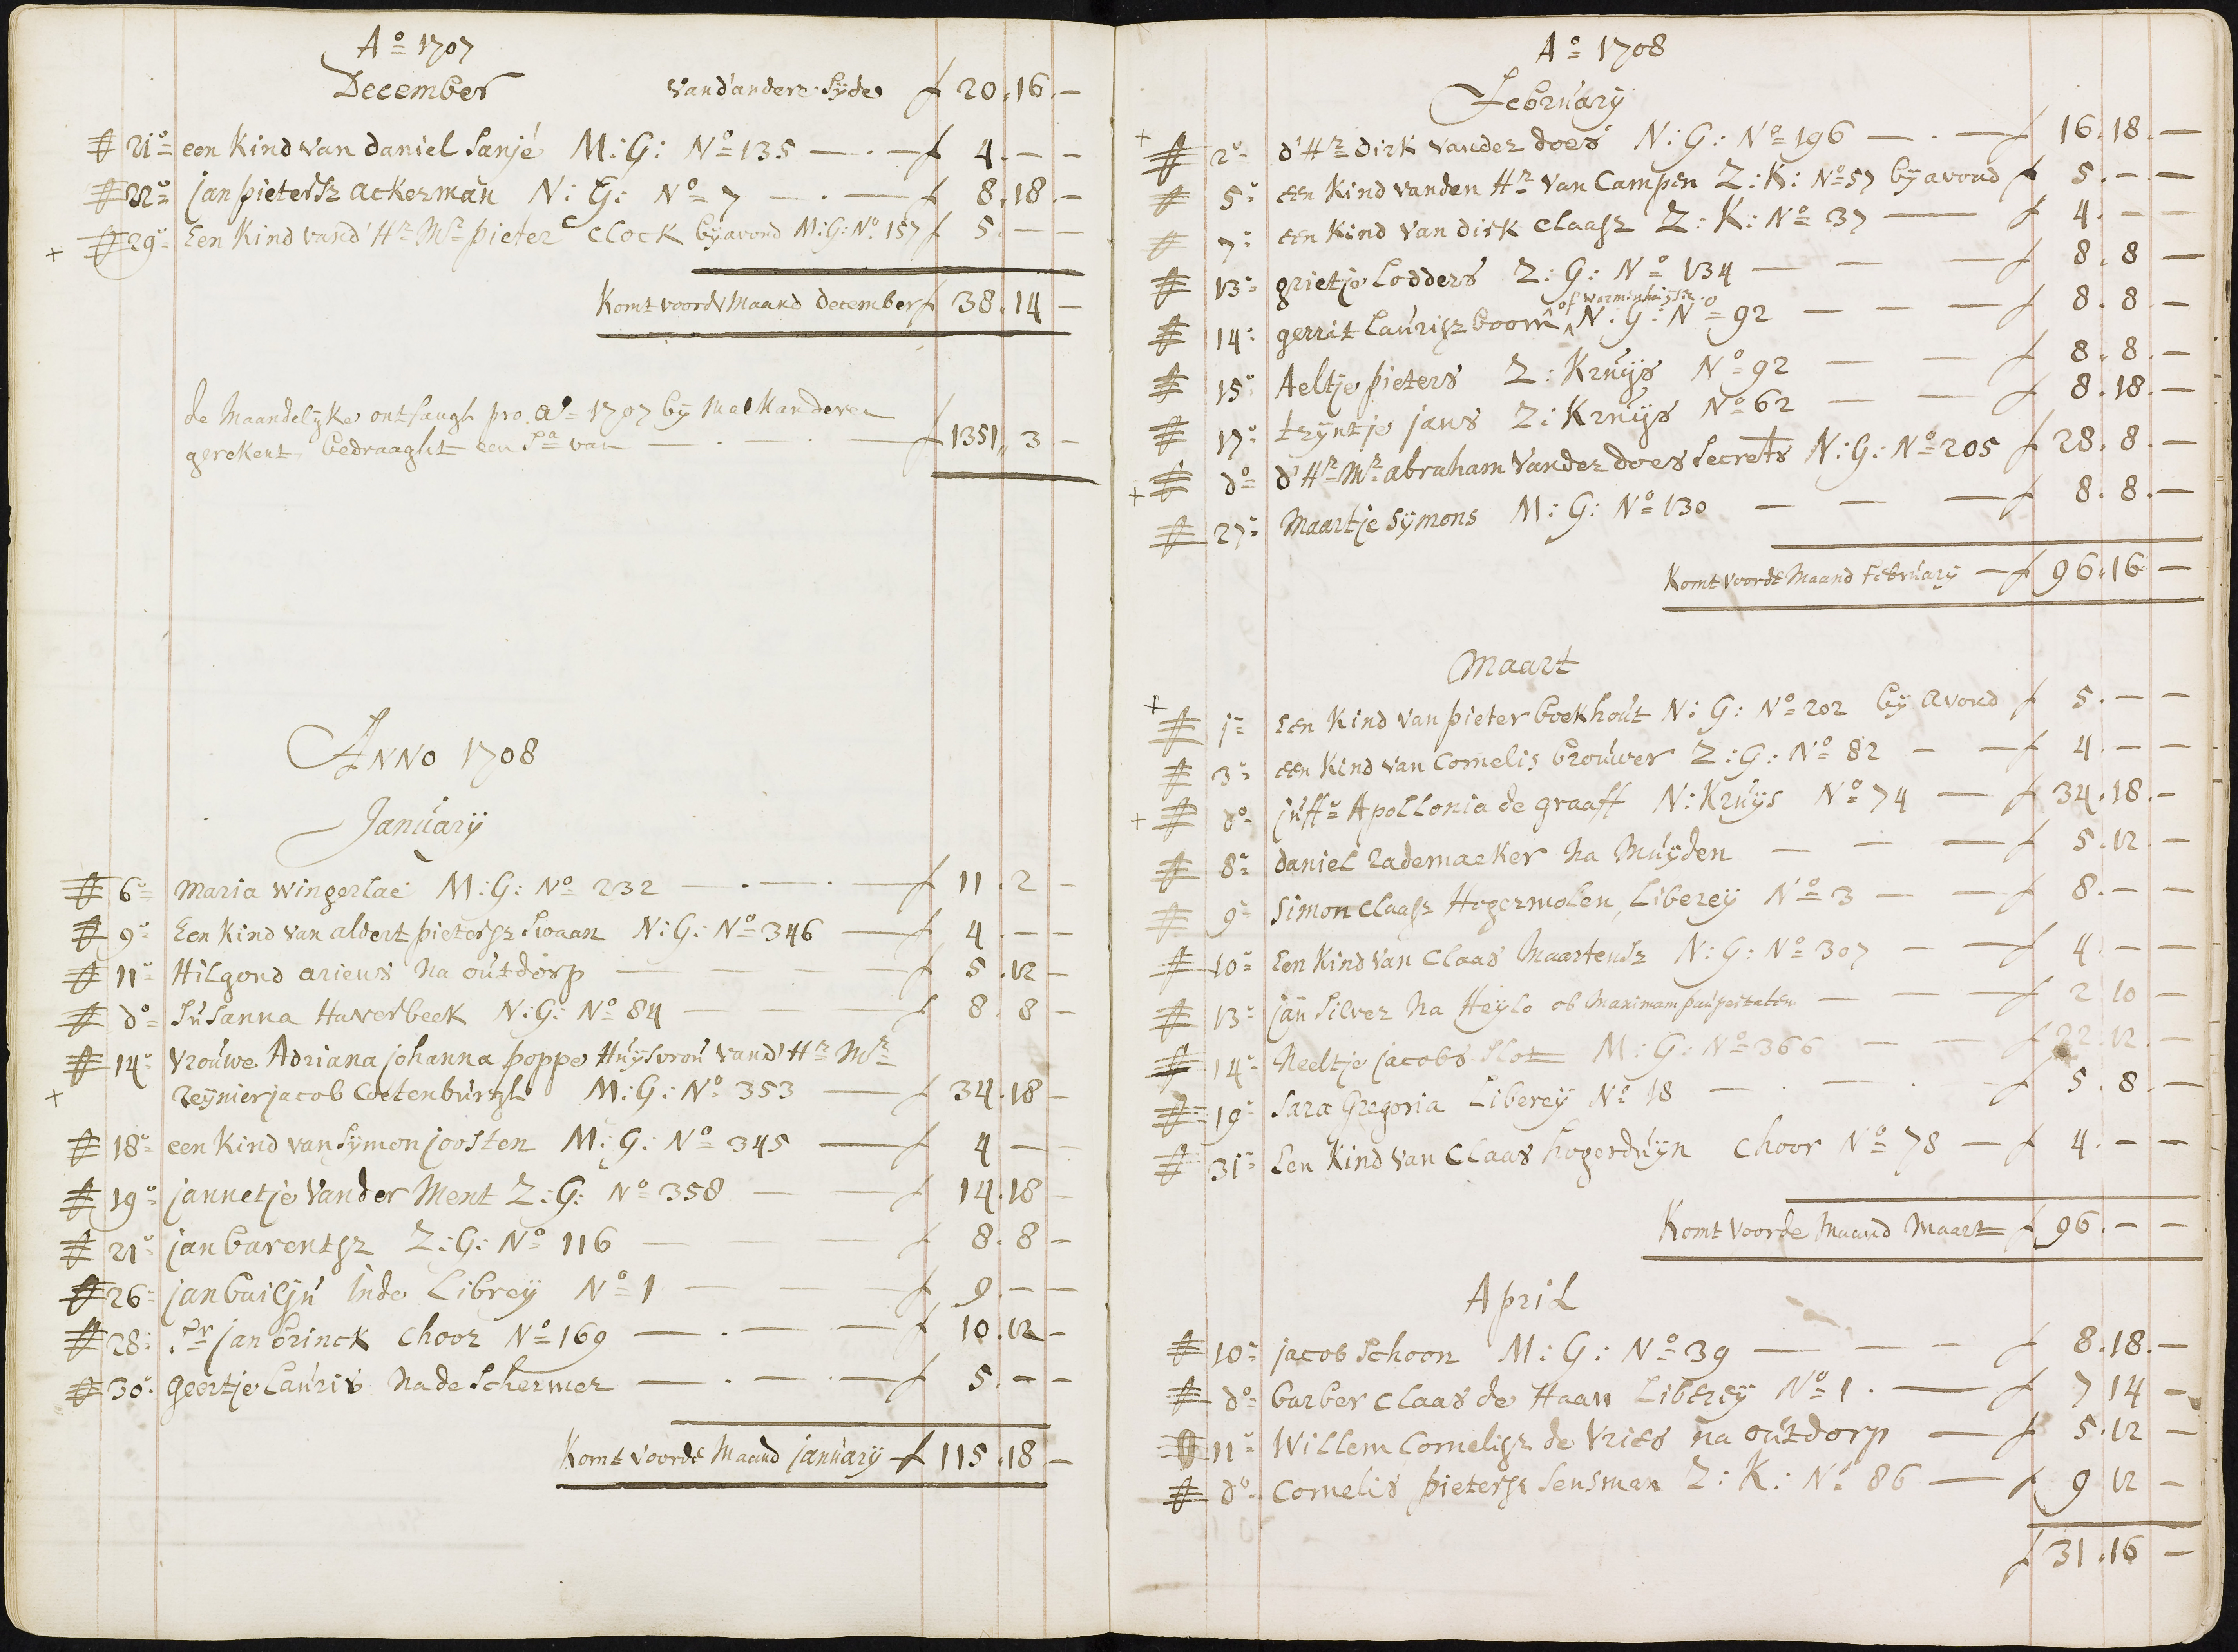 Aº 1707
December
vand'andere Syde f 20.16.—
21º een Kind van daniel Sanjé M:G: Nº 135 — . — f 4.—.—
22º jan pietersz ackerman N:G: Nº 7 — . — f 8.18.—
+ 29º Een Kind vand' Hr Mr pieter Clock by avond M:G: Nº 157 f 5.—.—
Komt voord Maand december f 38.14 —
de Maandelyke ontfangh pro. aº 1707 by Malkanderen
gerekent, bedraaght een Sa van — . — . — f 1351,, 3 —
Anno 1708
January
6º Maria wingerlae M:G: Nº 232 — . — . — f 11.2 —
9º Een Kind van aldert pietersz Swaan N:G: Nº 346 — f 4.—.—
11º Hilgond ariens na oútdorp — — — — f 5.12 —
dº Súsanna Haverbeek N:G: Nº 84 — — — f 8.8 —
14º Vroúwe Adriana johanna poppe Húysvroú vand' Hr Mr
+ Reynier jacob Coetenbúrgh M:G: Nº 353 — f 34.18 —
18º een Kind van Symon joosten M:G: Nº 345 — f 4 — —
19º jannetje Vander Ment Z:G: Nº 358 — — f 14.18 —
21º jan barentsz Z:G: Nº 116 — — — f 8.8 —
26º jan bailjú inde Librey Nº 1 — — — f 9.—.—
28º Sr jan brinck Choor Nº 169 — . — — f 10.12 —
30º geertje Laúris na de Schermer — . — . — f 5.—.—
Komt voorde Maand january f 115.18 —
Aº 1708
February
+ 2º d' Hr dirk vander does N:G: Nº 196 — . — f 16.18.—
5º een Kind vanden Hr van Campen Z:K: Nº 57 by avond f 5.—.—
7º een Kind van dirk Claasz Z:K: Nº 37 — f 4.—.—
13º grietje Lodders Z:G: Nº 134 — — — f 8.8 —
of warmenhúysz
14º gerrit Laúrisz boom N:G: Nº 92 — — — f 8.8.—
15º Aeltje pieters Z:Krúys Nº 92 — — f 8.8.—
17º tryntje jans Z:Krúys Nº 62 — — f 8.18.—
+ dº d' Hr Mr abraham Vander does Secrets N:G: Nº 205 f 28.8.—
27º Maartje Symons M:G: Nº 130 — — — f 8.8.—
Komt voorde Maand Febrúary — f 96.16 —
Maart
+ 1º Een Kind van pieter boekhoút N:G: Nº 202 by avond f 5.—.—
3º een Kind van Cornelis broúwer Z:G: Nº 82 — — f 4.—.—
+ dº júffr Apollonia de graaff N:Krúys Nº 74 — f 34.18.—
8º daniel Rademaeker na Múyden — — — f 5.12.—
9º Simon Claasz Hogermolen, Liberey Nº 3 — — f 8.—.—
10º Een Kind van Claas Maartensz N:G: Nº 307 — — f 4.—.—
13º jan Silver na Heylo ob maximam paúpertatem — — — f 2.10 —
14º Neeltje jacobs Slot M:G: Nº 366 — — f 22.12.—
19º Sara Gregoria Liberey Nº 18 — . — . — f 5.8.—
31º Een Kind van Claas hogerdúyn Choor Nº 78 — f 4.—.—
Komt voorde Maand Maart f 96.—.—
April
10º jacob Schoon M:G: Nº 39 — — — f 8.18.—
dº barber Claas de Haan Liberey Nº 1 . — f 7 14 —
11º Willem Cornelisz de Vries na oútdorp — f 5.12 —
dº Cornelis pietersz Sensman Z:K: Nº 86 — f 9 12 —
f 31.16 —